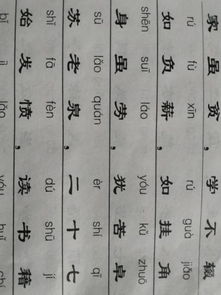 家虽贫，学不辍
rú fù xīn rú guà jiǎo
如负薪，如挂角
shēn suī láo yóu kǔ zhuó
身虽劳，犹苦卓
sū lǎo quán èr shí qī
苏老泉，二十七
shǐ fā fèn dú shū jí
始发愤，读书籍